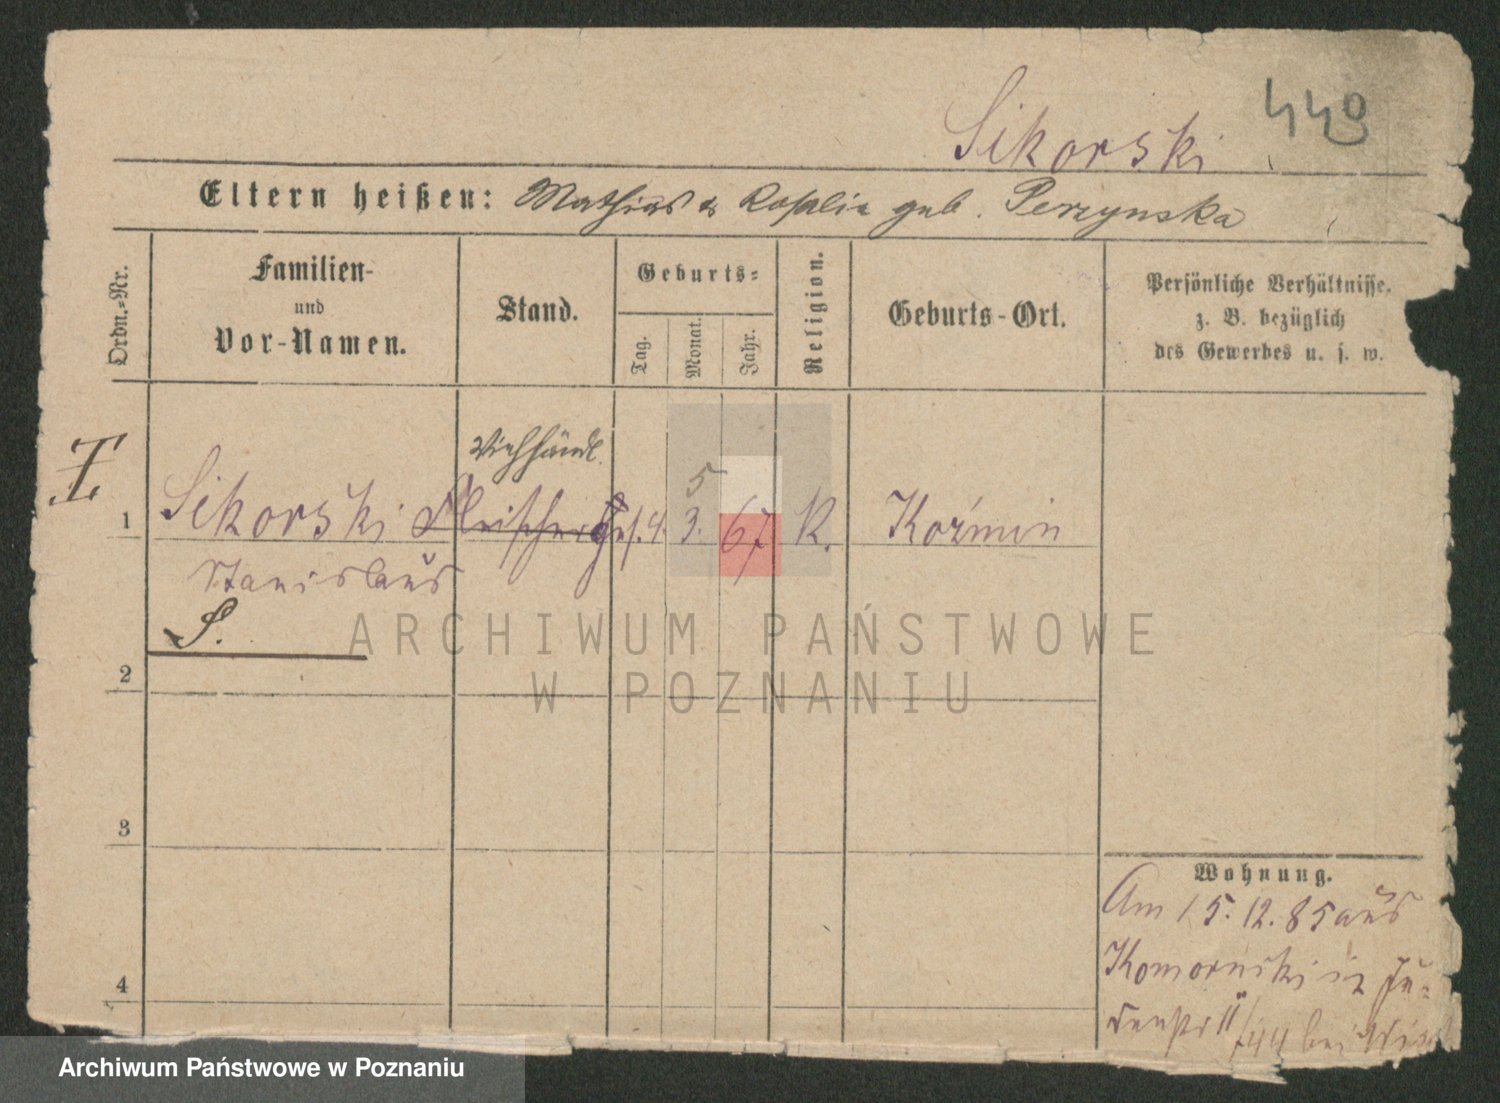 449
Sikorski
Eltern heißen: Mathias & Rosalie geb. Perzynska
Ordn.-Nr.
Familien-
und
Vor-Namen.
Stand.
Geburts-
Tag.
Monat.
Jahr.
Religion.
Geburts-Ort.
Persönliche Verhältnisse.
z. B. bezüglich
des Gewerbes u. s. w.
Viehhändl.
5
1 Sikorski Fleischerges. 4. 3. 67 K. Koźmin
Stanislaus
S.
ARCHIWUM PAŃSTWOWE
W POZNANIU
2
3
4
Wohnung.
Am 15.12.85 aus
Komorniki in Ju-
denstr 11/44 bei
Archiwum Państwowe w Poznaniu